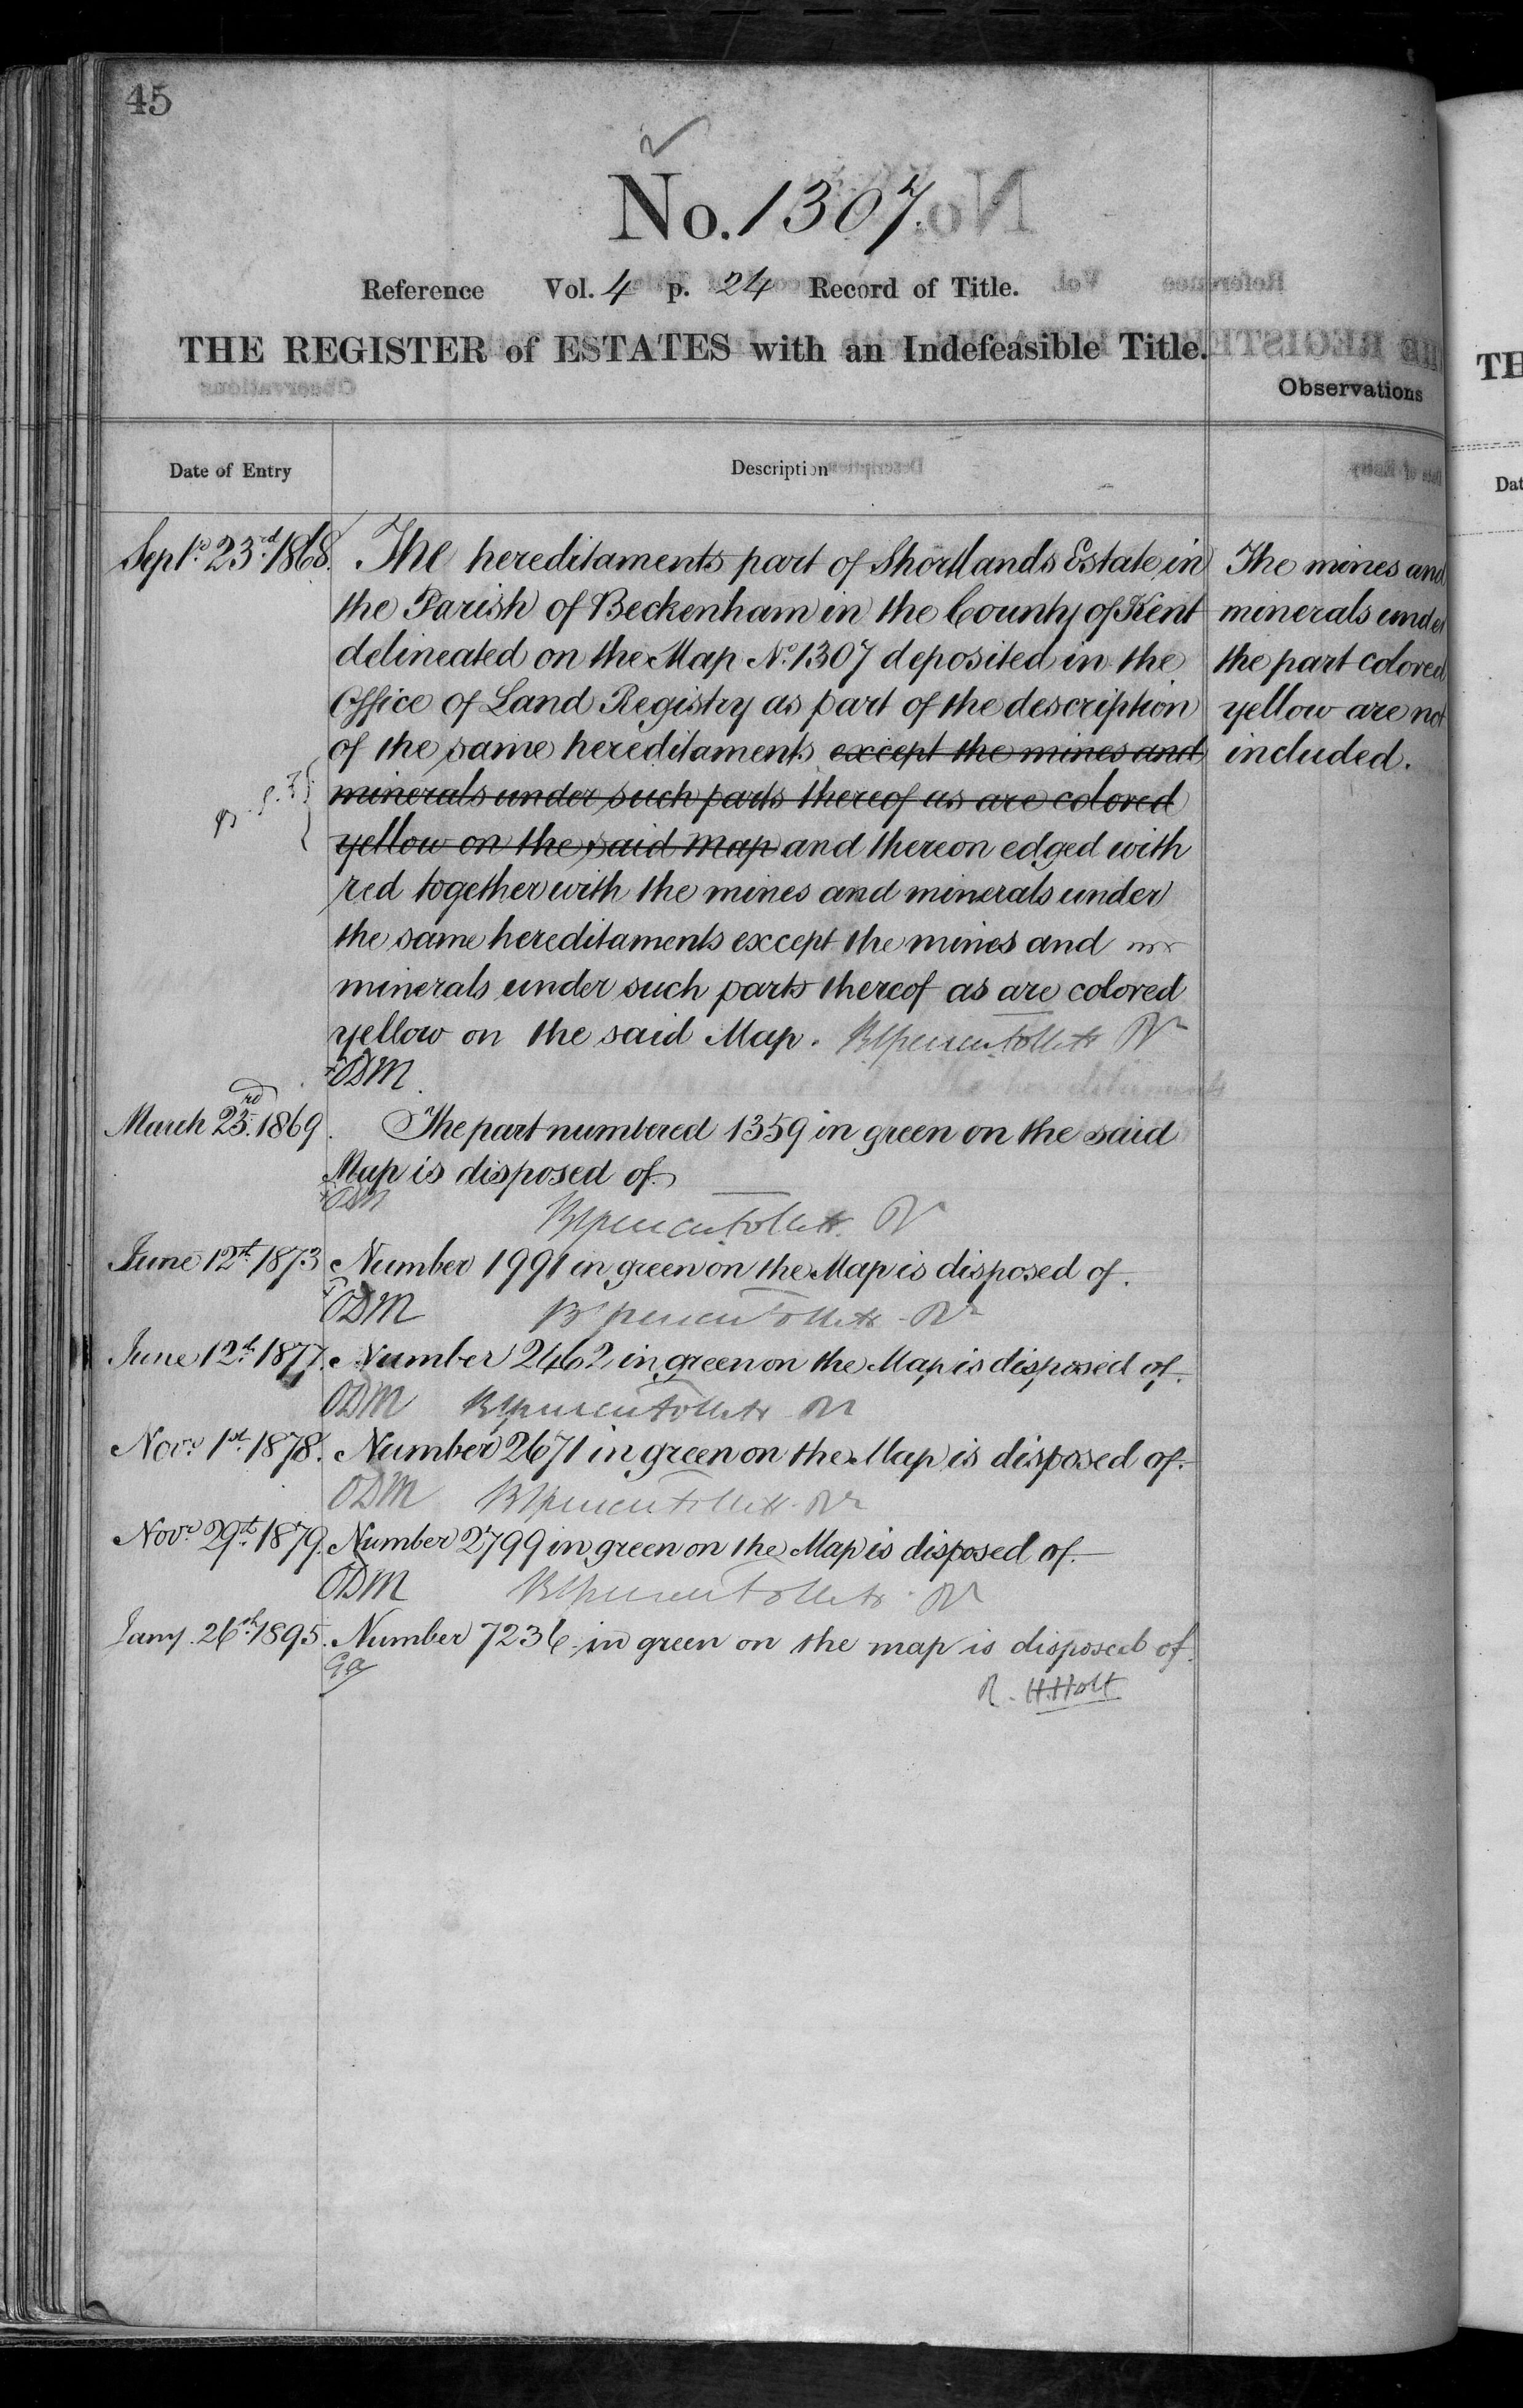 45
No. 1307.
Reference Vol. 4 p. 24 Record of Title.
THE REGISTER of ESTATES with an Indefeasible Title.
Observations
Date of Entry
Description
Septr. 23rd. 1868. The hereditaments part of Shortlands Estate in
the Parish of Beckenham in the County of Kent
delineated on the Map No. 1307 deposited in the
Office of Land Registry as part of the description
of the same hereditaments except the mines and
minerals under such parts thereof as are colored
yellow on the said Map and thereon edged with
red together with the mines and minerals under
the same hereditaments except the mines and
minerals under such parts thereof as are colored
yellow on the said Map.
ODM
The mines and
minerals under
the part colored
yellow are not
included.
March 23rd. 1869. The part numbered 1359 in green on the said
Map is disposed of.
ODM
June 12th. 1873 Number 1991 in green on the Map is disposed of.
ODM
June 12th. 1877. Number 2462 in green on the Map is disposed of.
ODM
Novr. 1st. 1878. Number 2671 in green on the Map is disposed of.
ODM
Novr. 29th. 1879. Number 2799 in green on the Map is disposed of.
ODM
Jany. 26th. 1895. Number 7236 in green on the map is disposed of.
R. H. Holt
TH
Dat